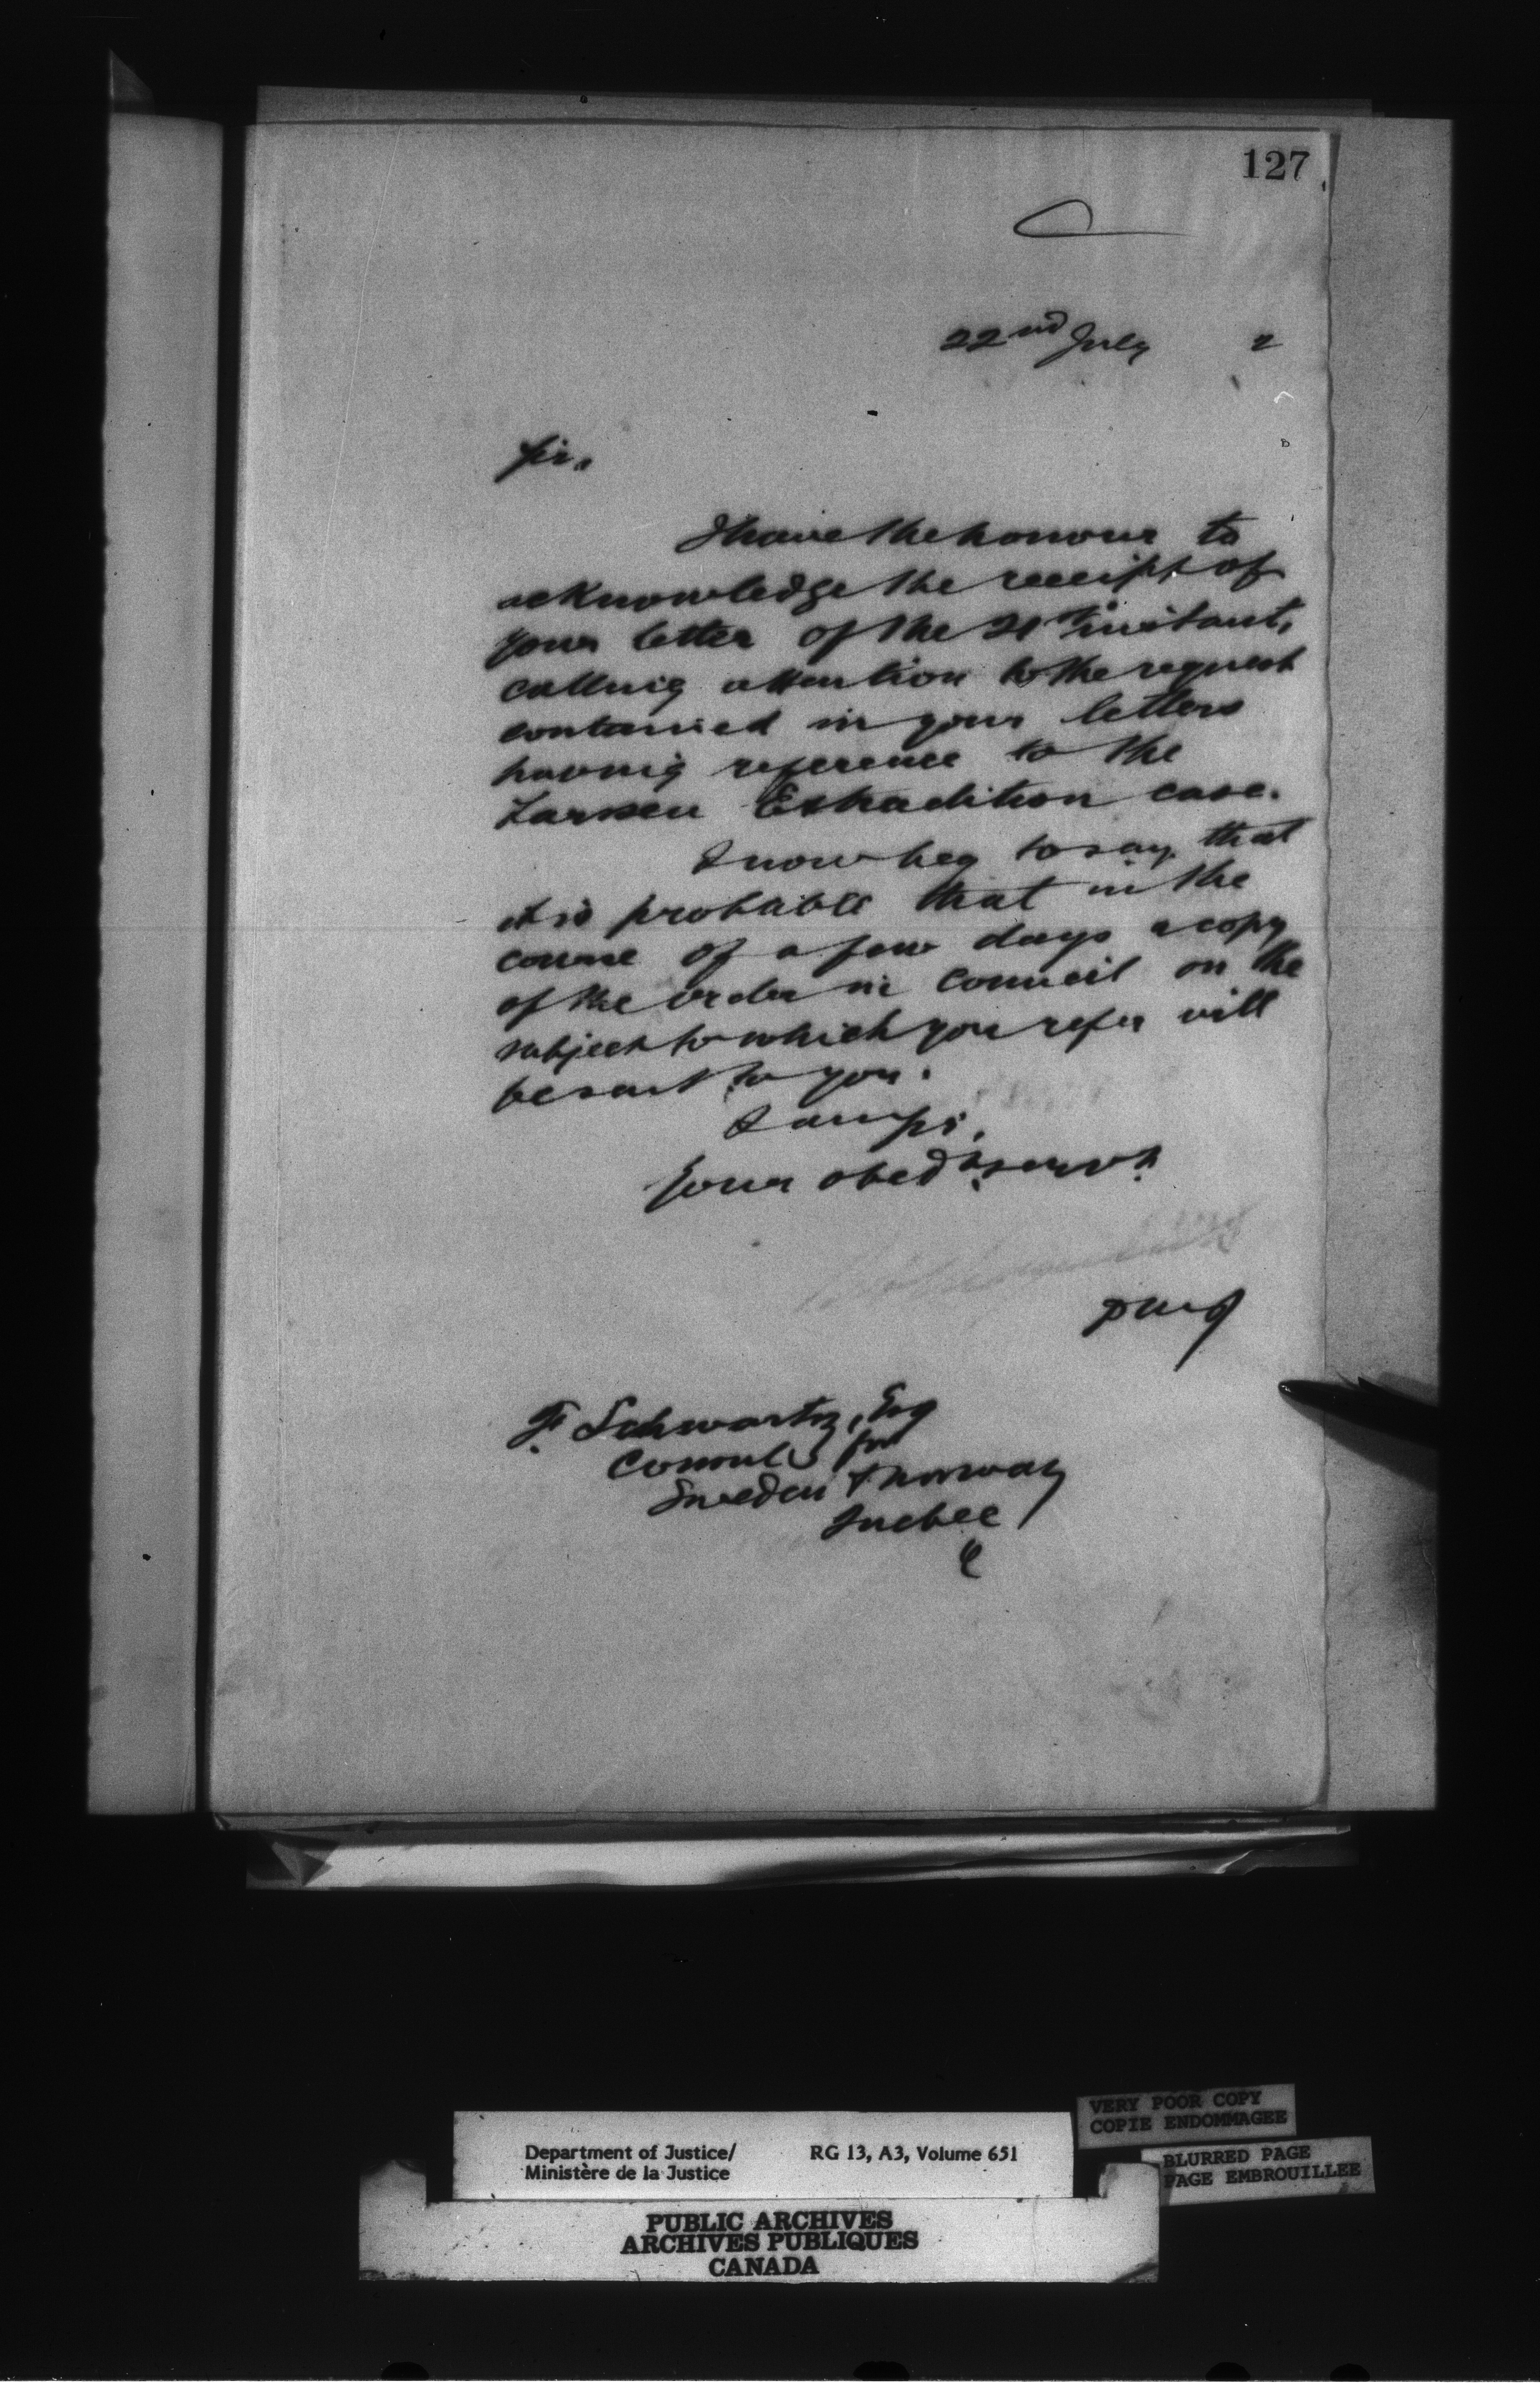 127
22nd July 2
Sir,
I have the honour to
acknowledge the receipt of
your letter of the 21st instant,
calling attention to the request
contained in your letters
having reference to the
Larsen Extradition case.
I now beg to say that
it is probable that in the
course of a few days a copy
of the order in Council on the
subject to which you refer will
be sent to you.
I am, Sir,
Your obedt servt.
F. Schwartz, Esq
Consul for
Sweden & Norway
Quebec
VERY POOR COPY
COPIE ENDOMMAGEE
Department of Justice/ RG 13, A3, Volume 651
Ministère de la Justice
BLURRED PAGE
PAGE EMBROUILLEE
PUBLIC ARCHIVES
ARCHIVES PUBLIQUES
CANADA